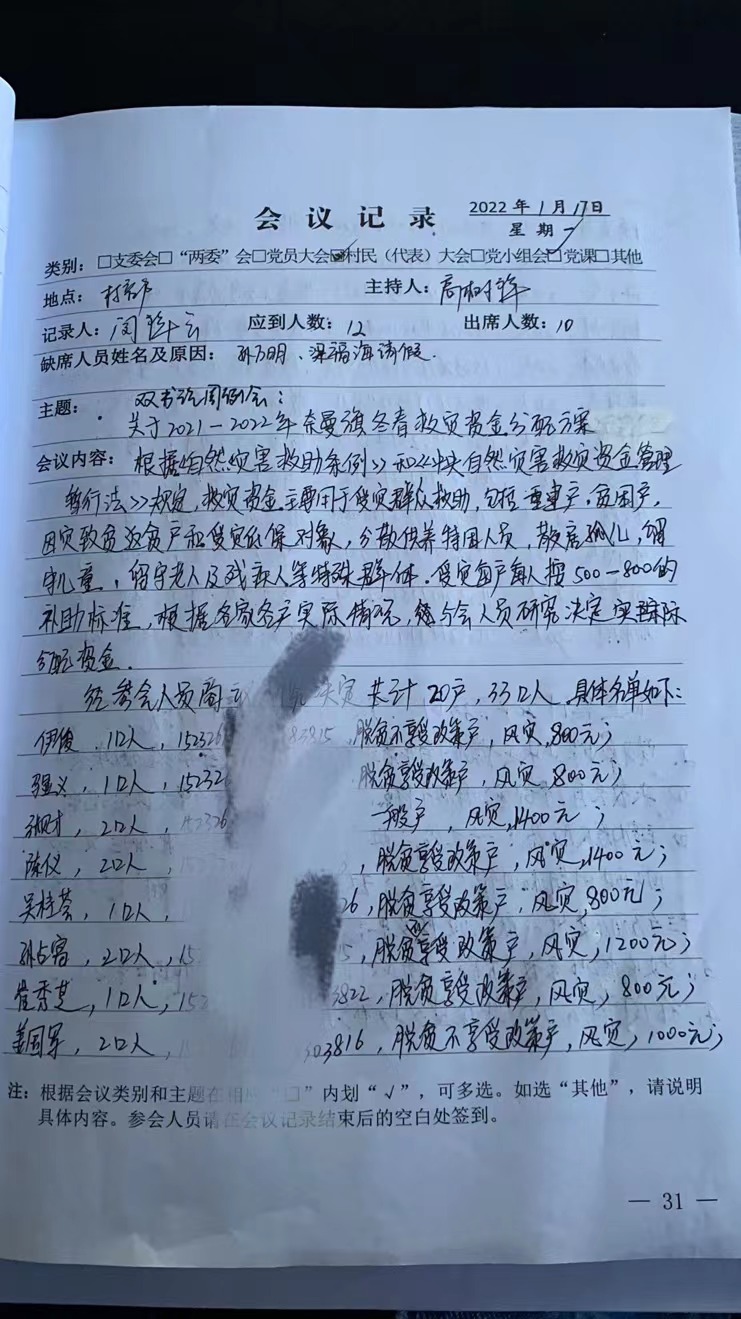 会议记录 2022年1月17日
星期一
类别：□支委会□“两委”会□党员大会☑村民（代表）大会□党小组会□党课□其他
地点：村部 主持人：
记录人：闫 应到人数：12 出席人数：10
缺席人员姓名及原因：孙万明、梁福海请假.
主题： 例会：
关于2021—2022年奈曼旗冬春救灾资金分配方案
会议内容：根据《自然灾害救助条例》和《中央自然灾害救灾资金管理
暂行法》规定，救灾资金主要用于受灾群众救助，包括重建户，贫困户，
因灾致贫返贫户和受灾低保对象，分散供养特困人员，散居孤儿，留
守儿童，留守老人及残疾人等特殊群体．受灾每户每人按500—800的
补助标准，根据各家各户实际情况，经与会人员研究决定实际
分配资金．
经参会人员商 决定共计20户，33口人，具体名单如下：
伊俊，1口人，152326 83815，脱贫不享受政策户，风灾，800元；
义，1口人，15232 脱贫享受政策户，风灾，800元；
才，2口人，152326 一般户，风灾，1400元；
陈仪，2口人， ，脱贫享受政策户，风灾，1400元；
吴桂荟，1口人， 26，脱贫享受政策户，风灾，800元；
孙占富，2口人，15 5，脱贫不享受政策户，风灾，1200元；
崔秀芝，1口人，152 3822，脱贫享受政策户，风灾，800元；
姜国军，2口人，15 303816，脱贫不享受政策户，风灾，1000元；
注：根据会议类别和主题在相应“□”内划“√”，可多选。如选“其他”，请说明
具体内容。参会人员请在会议记录结束后的空白处签到。
— 31 —